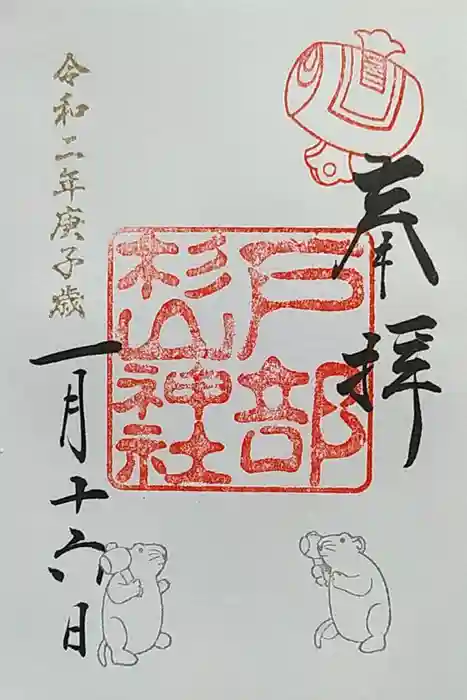 奉拝
戸部
杉山
神社
令和二年庚子歳
一月十六日